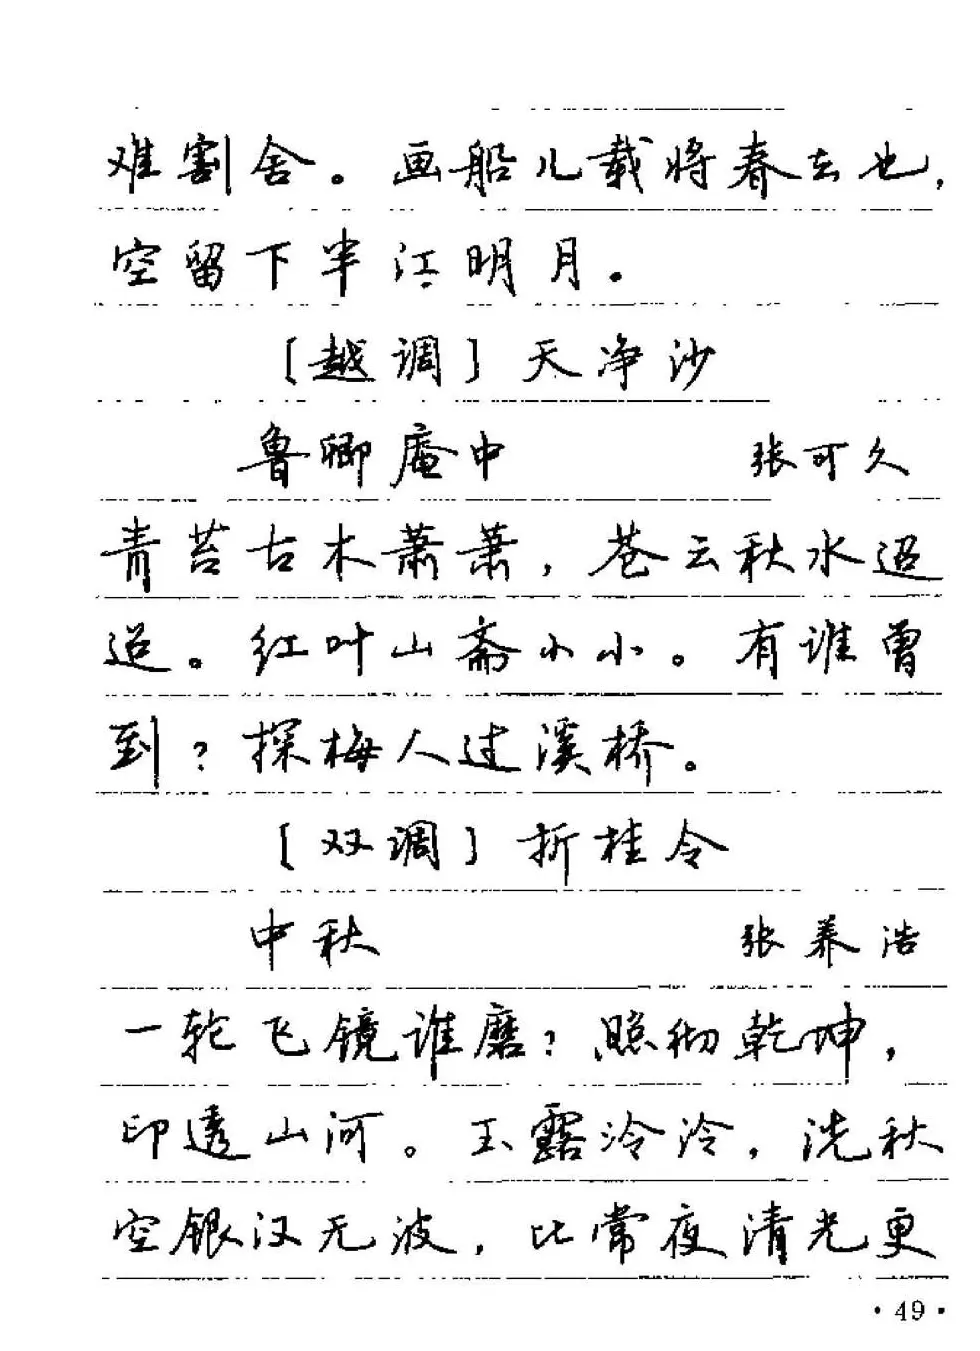 难割舍。画船儿载将春去也,
空留下半江明月。
〔越调〕天净沙
鲁卿庵中 张可久
青苔古木萧萧,苍云秋水迢
迢。红叶山斋小小。有谁曾
到?探梅人过溪桥。
〔双调〕折桂令
中秋 张养浩
一轮飞镜谁磨?照彻乾坤,
印透山河。玉露泠泠,洗秋
空银汉无波,比常夜清光更
·49·